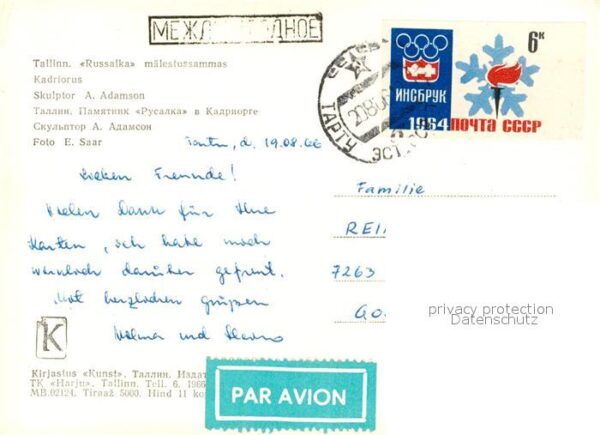 МЕЖДУНАРОДНОЕ
6к
ИНСБРУК
1964 ПОЧТА СССР
ТАРТУ
Tallinn. «Russalka» mälestussammas
Kadriorus
Skulptor A. Adamson
Таллин. Памятник «Русалка» в Кадриорге
Скульптор А. Адамсон
Foto E. Saar
Tartu, d. 19.08.66
Lieben Freunde!
Vielen Dank für Ihre
Karten, ich habe mich
darüber gefreut.
Mit herzlichen Grüßen
und
Familie
REI
7263
Go
privacy protection
Datenschutz
K
Kirjastus «Kunst». Таллин. Издат
TK «Harju». Tallinn. Tell. 6. 1966
MB.02124. Tiraaž 5000. Hind 11 ko
PAR AVION